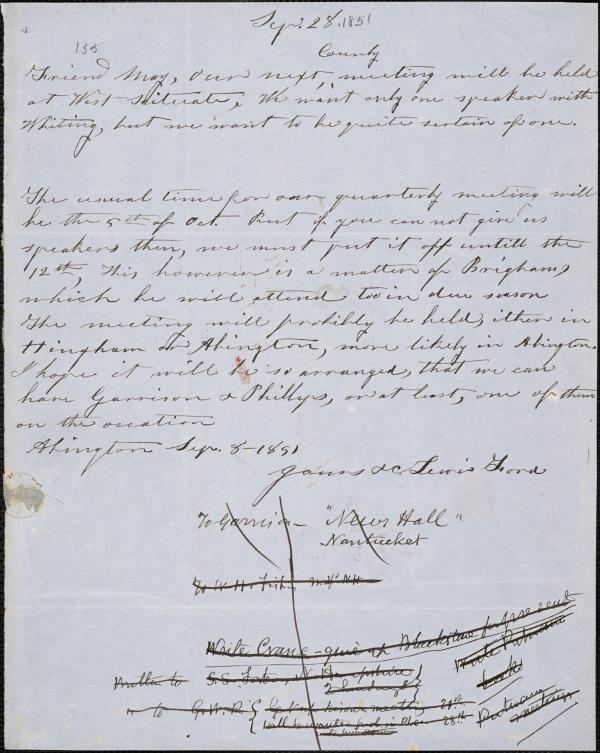 Sep. 28. 1851
135
County
Friend May, Our next, meeting will be held
at West Scituate, We want only one speaker with
Whiting, but we want to be quite sertain of one.
The usual time for our quarterly meeting will
be the 5th of Oct. But if you can not give us
speakers then, we must put it off untill the
12th, This however is a matter of Brighams
which he will attend too in due season
The meeting will probibly be held, ither in
Hingham or Abington, more likely in Abington.
I hope it will be so arranged, that we can
have Garrison & Phillyps, or at least, one of them
on the occation
Abington Sep. 8-1851
yours &c Lewis Ford
To Garrison - "News Hall"
Nantucket
To W. H. Fish,
Write Crane - give up Blackstone for present
Write Putnam
Wrote to
to G. W. P.
Putnam
meetings